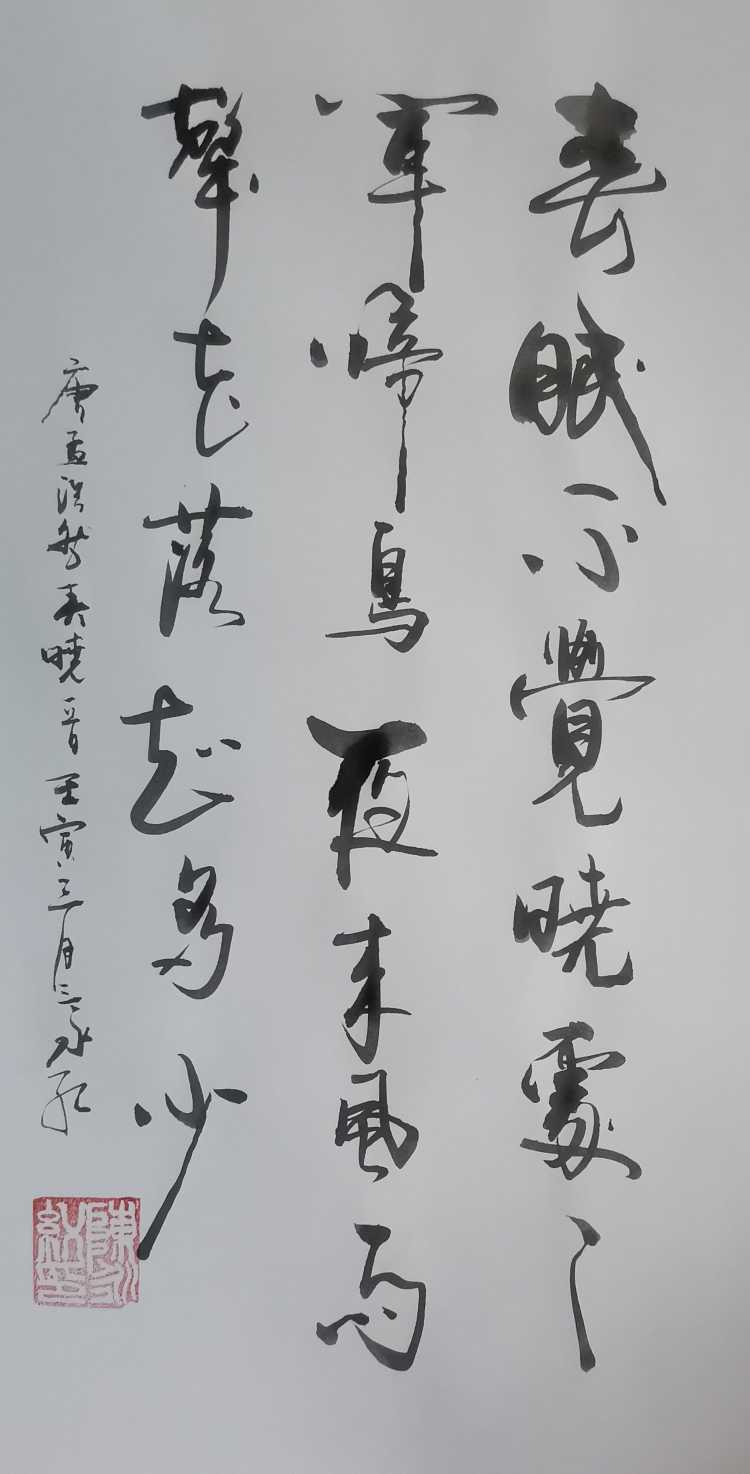 春眠不覺曉處々
聞啼鳥夜来風雨
聲花落知多少
唐孟浩然春曉一首壬寅三月三永红
陳永
紅印